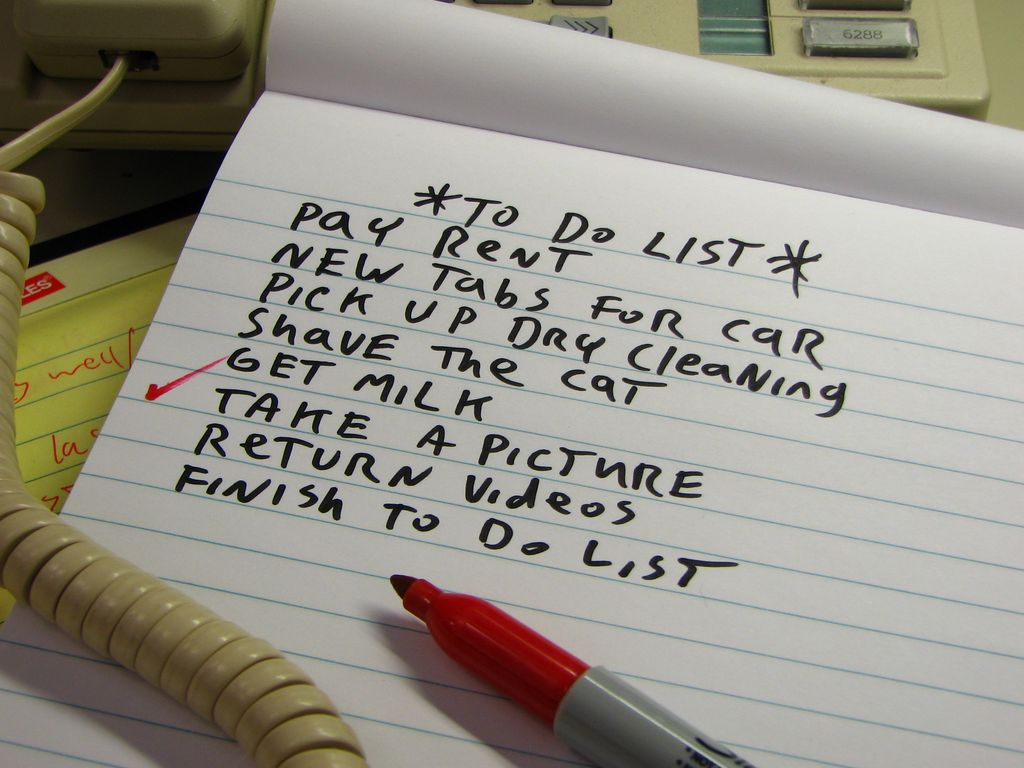 6288
*TO DO LIST*
PAY RENT
NEW TABS FOR CAR
PICK UP DRY CLEANING
SHAVE THE CAT
GET MILK
TAKE A PICTURE
RETURN VIDEOS
FINISH TO DO LIST
well